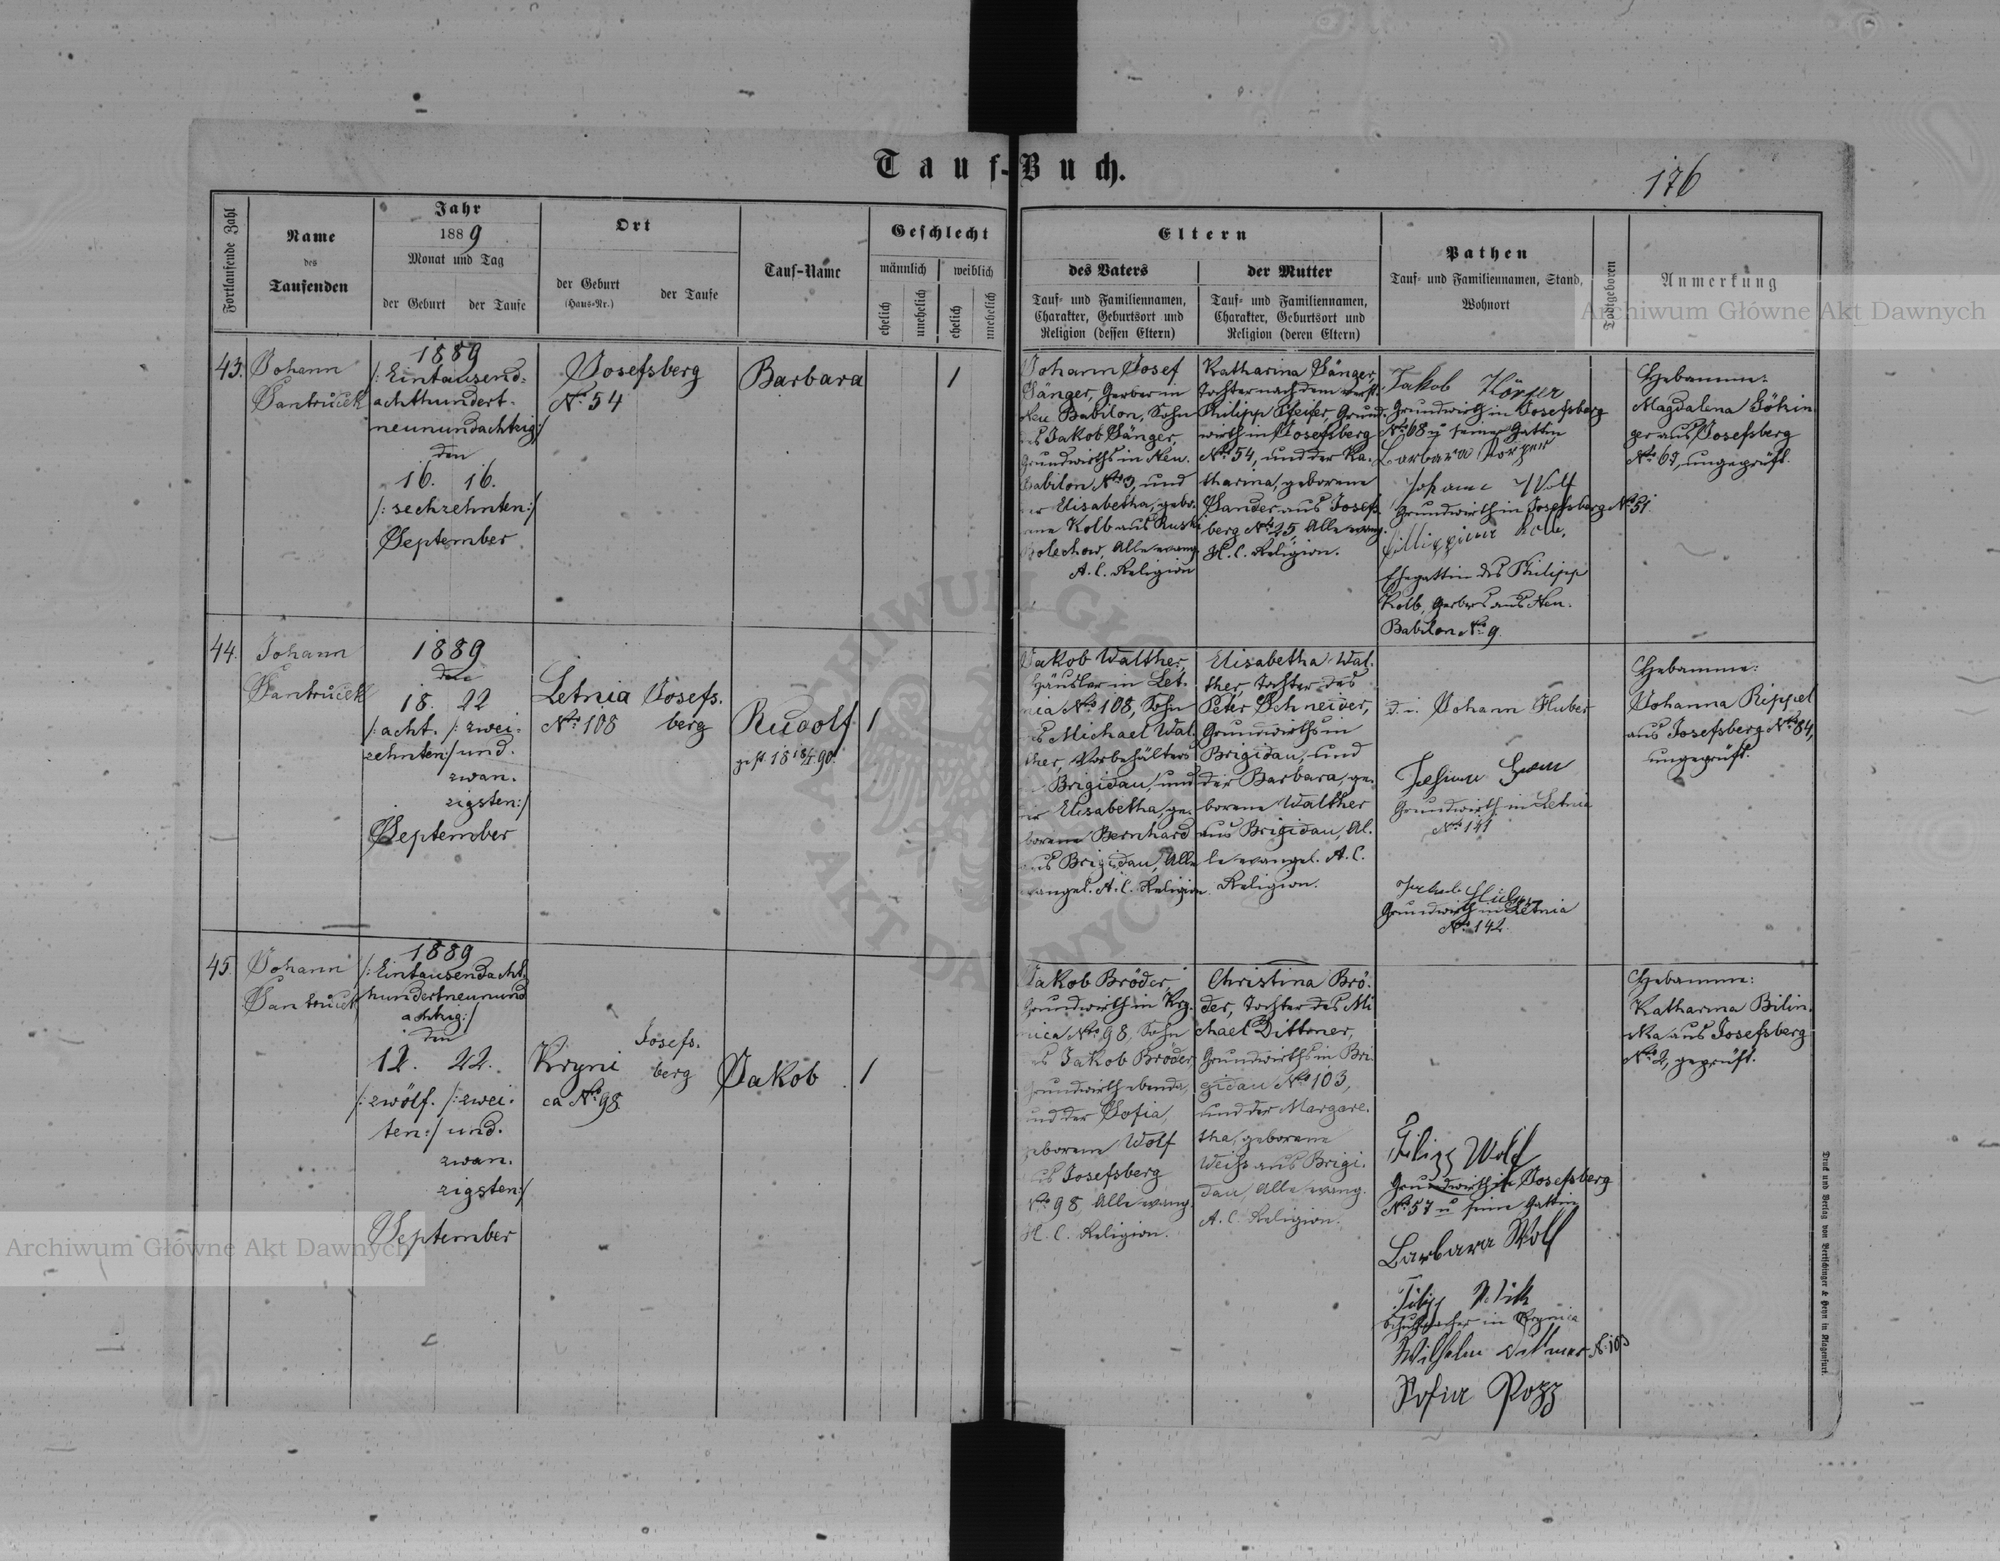 Tauf-Buch.
176
Fortlaufende Zahl
Name
des
Taufenden
Jahr
1889
Monat und Tag
der Geburt
der Taufe
Ort
der Geburt
(Haus-Nr.)
der Taufe
Tauf-Name
Geschlecht
männlich
weiblich
ehelich
unehelich
ehelich
unehelich
Eltern
des Vaters
Tauf- und Familiennamen,
Charakter, Geburtsort und
Religion (dessen Eltern)
der Mutter
Tauf- und Familiennamen,
Charakter, Geburtsort und
Religion (deren Eltern)
Pathen
Tauf- und Familiennamen, Stand,
Wohnort
Todtgeboren
Anmerkung
43.
Johann
Santrůček
1889
/: Eintausend-
achthundert-
neunundachtzig:/
den
16. 16.
/: sechzehnten:/
September
Josefsberg
No 54
Barbara
1
Johann Josef
Sänger, Gerber in
Neu Babilon, Sohn
des Jakob Sänger,
Grundwirths in Neu-
Babilon No 3, und
der Elisabetha, gebo-
rene Kolb aus
Bolechow, Alle evang.
A. C. Religion
Katharina Sänger,
Tochter nach dem verst.
Philipp Pfeifer, Grund-
wirth in Josefsberg
No 54, und der Ka-
tharina, geborene
Sander aus Josefs-
berg No 25, Alle evang.
H. C. Religion.
Jakob Körper
Grundwirth in Josefsberg
No 68 u seine Gattin
Barbara Körper
Johann Wolf
Grundwirth in Josefsberg No 51.
Ehegattin des Philipp
Kolb, Gerbers aus Neu-
Babilon No 9.
Hebamme:
Magdalena Göhrin-
ger aus Josefsberg
No 69, ungeprüft.
44.
Johann
Santrůček
1889
den
18. 22
/: acht- /: zwei-
zehnten:/ und-
zwan-
zigsten:/
September
Letnia
No 108
Josefs-
berg
Rudolf
gest. 18 18/4 90.
1
Jakob Walther,
Häusler in Let-
nia No 108, Sohn
des Michael Wal-
ther, Vorbehälters
in Brigidau, und
der Elisabetha, ge-
borene Bernhard
aus Brigidau, Alle
evangel. A. C. Religion
Elisabetha Wal-
ther, Tochter des
Peter Schneider,
Grundwirths in
Brigidau, und
der Barbara, ge-
borene Walther
aus Brigidau, Al-
le evangel. A. C.
Religion.
d. i. Johann Huber
Grundwirth in Letnia
No 141
Jakob Huber
Grundwirth in Letnia
No 142
Hebamme:
Johanna Rippel
aus Josefsberg No 84,
ungeprüft.
45.
Johann
Santrůček
1889
/: Eintausendacht-
hundertneunund
achtzig:/
den
12. 22.
/: zwölf- /: zwei-
ten:/ und-
zwan-
zigsten:/
September
Kryni
ca No 98
Josefs-
berg
Jakob
1
Jakob Bröder,
Grundwirth in Kry-
nica No 98, Sohn
des Jakob Bröder
Grundwirth ebenda,
und der Sofia,
geborene Wolf
aus Josefsberg
No 98, Alle evang.
H. C. Religion.
Christina Brö-
der, Tochter des Mi
chael Dittmer,
Grundwirths in Bri-
gidau No 103,
und der Margare-
tha, geborene
Weiss aus Brigi-
dau, Alle evang.
A. C. Religion.
Filipp Wolf
Grundwirth in Josefsberg
No 57 u seine Gattin
Barbara Wolf
Filipp
in Krynica
Wilhelm Dittmer N. 103
Sofia Popp
Hebamme:
Katharina Bilin-
ska aus Josefsberg
No 2, geprüft.
Druck und Verlag von Bertschinger & Heyn in Klagenfurt.
Archiwum Główne Akt Dawnych
Archiwum Główne Akt Dawnych
ARCHIWUM GŁÓWNE AKT DAWNYCH